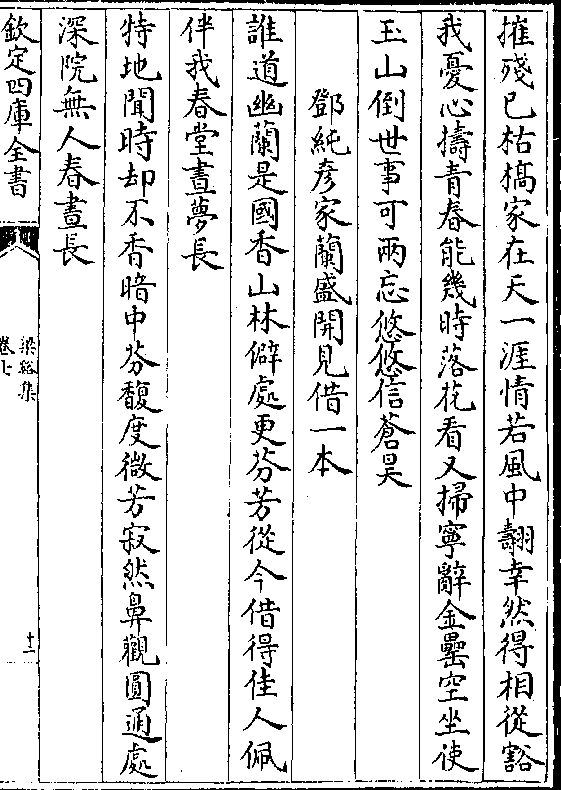 摧殘已枯槁家在天一涯情若風中翿幸然得相從豁
我憂心擣青春能幾時落花看又掃寧辭金罍空坐使
玉山倒世事可兩忘悠悠信蒼昊
鄧純彦家蘭盛開見借一本
誰道幽蘭是國香山林僻處更芬芳從今借得佳人佩
伴我春堂晝夢長
特地聞時却不香暗中芬馥度微芳寂然鼻觀圓通處
深院無人春晝長
欽定四庫全書
梁谿集
卷七
十二